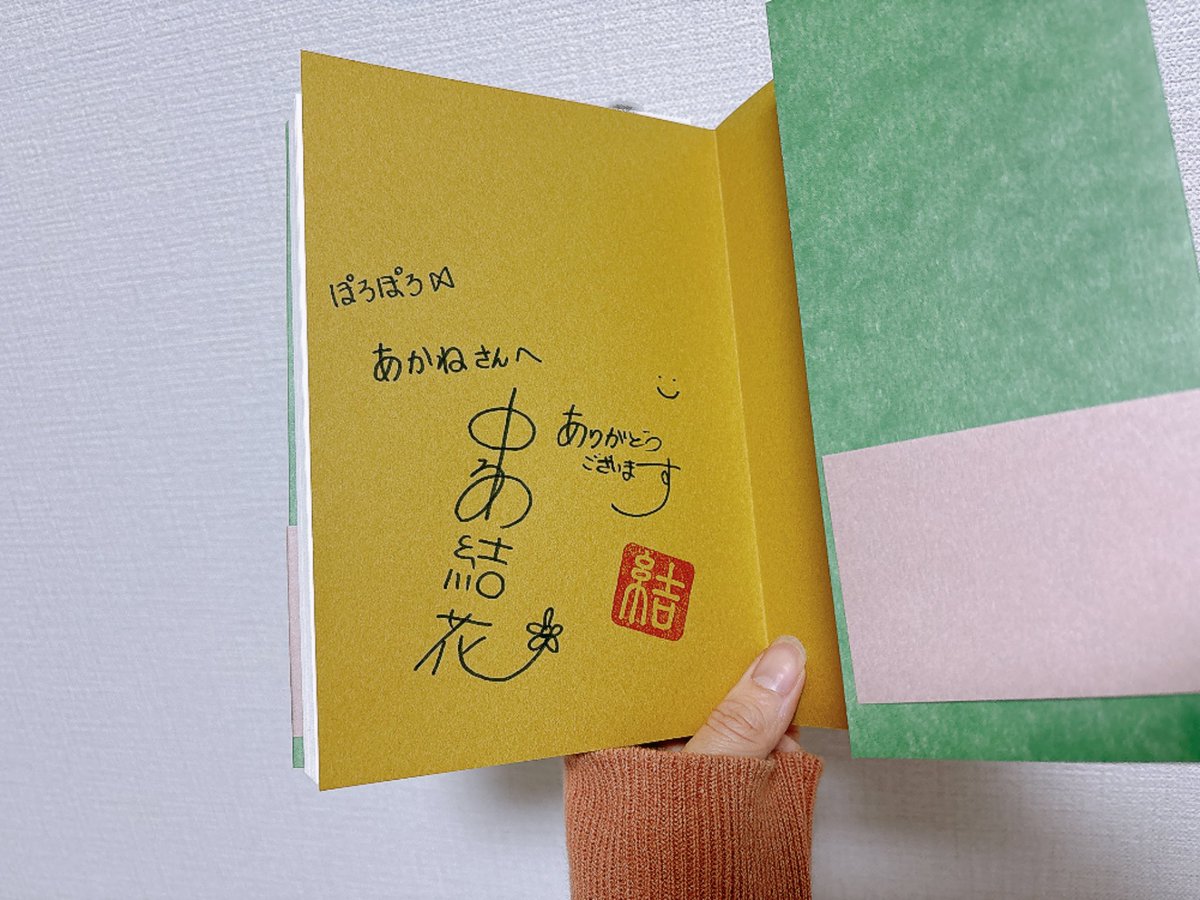 ぽろぽろ
あかねさんへ
中前結花
ありがとう
ございます
結